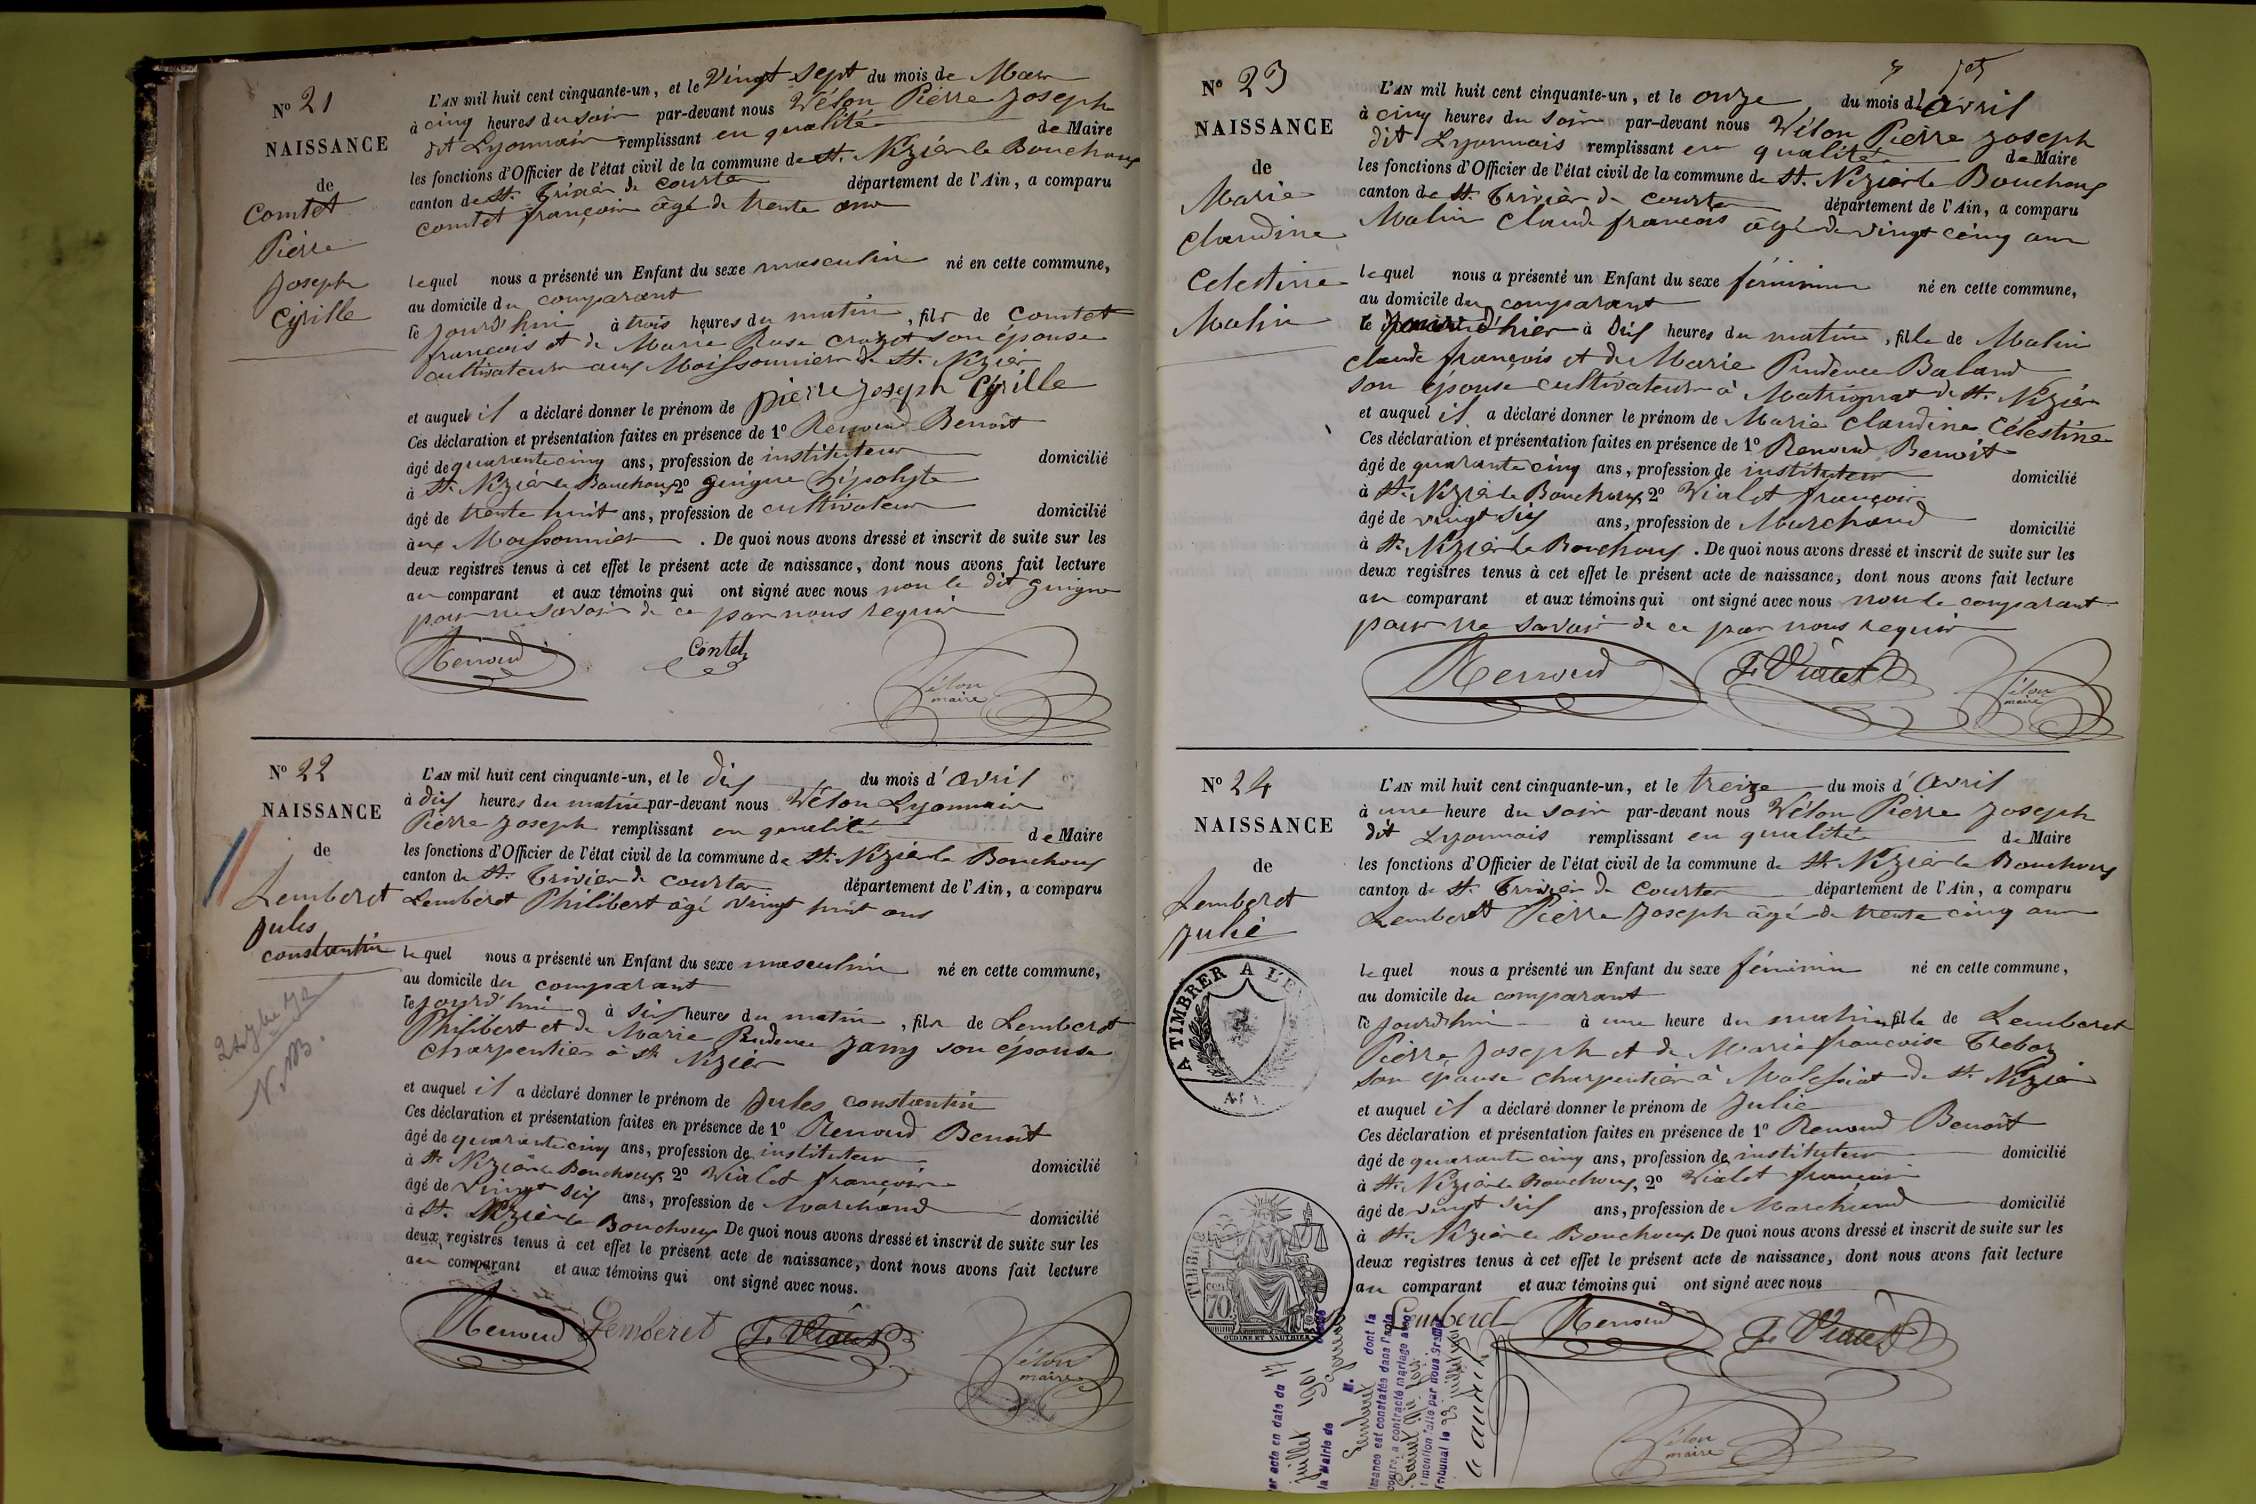 N° 21
NAISSANCE
de
Comtet
Pierre
Joseph
Cyrille
L'AN mil huit cent cinquante-un, et le Vingt sept du mois de Mars
à cinq heures du soir par-devant nous Vélon Pierre Joseph
dit Lyonnais remplissant en qualité de Maire
les fonctions d'Officier de l'état civil de la commune de St. Nizier le Bouchoux
canton de St. Trivier de Courtes département de l'Ain, a comparu
Comtet françois âgé de trente ans
lequel nous a présenté un Enfant du sexe masculin né en cette commune,
au domicile du comparant
le jourd'hui à trois heures du matin, fils de Comtet
françois et de Marie Rose son épouse
cultivateurs aux Moissonnier de St. Nizier
et auquel il a déclaré donner le prénom de pierre Joseph Cyrille
Ces déclaration et présentation faites en présence de 1° Renoud Benoît
âgé de quarante cinq ans, profession de instituteur domicilié
à St. Nizier le Bouchoux, 2° guigue hipolyte
âgé de trente huit ans, profession de cultivateur domicilié
aux Moissonnier. De quoi nous avons dressé et inscrit de suite sur les
deux registres tenus à cet effet le présent acte de naissance, dont nous avons fait lecture
au comparant et aux témoins qui ont signé avec nous non le dit guigue
pour ne savoir de ce par nous requis
Renoud
Contet
Vélon
maire
N° 22
NAISSANCE
de
Lemberet
Jules
constantin
N. B.
L'AN mil huit cent cinquante-un, et le dix du mois d'avril
à dix heures du matin par-devant nous Vélon Lyonnais
Pierre Joseph remplissant en qualité de Maire
les fonctions d'Officier de l'état civil de la commune de St. Nizier le Bouchoux
canton de St. Trivier de Courtes département de l'Ain, a comparu
Lemberet Philibert âgé vingt huit ans
lequel nous a présenté un Enfant du sexe masculin né en cette commune,
au domicile du comparant
le jourd'hui à six heures du matin, fils de Lemberet
Philibert et de Marie Prudence Jany son épouse
Charpentier à St. Nizier
et auquel il a déclaré donner le prénom de Jules constantin
Ces déclaration et présentation faites en présence de 1° Renoud Benoît
âgé de quarante cinq ans, profession de instituteur domicilié
à St. Nizier le Bouchoux, 2° Vialet françois
âgé de vingt six ans, profession de Marchand domicilié
à St. Nizier le Bouchoux De quoi nous avons dressé et inscrit de suite sur les
deux registres tenus à cet effet le présent acte de naissance, dont nous avons fait lecture
au comparant et aux témoins qui ont signé avec nous.
Renoud
Lemberet
F. Vialet
Vélon
maire
N° 23
NAISSANCE
de
Marie
Claudine
Celestine
Malin
L'AN mil huit cent cinquante-un, et le onze du mois d'avril
à cinq heures du soir par-devant nous Vélon Pierre Joseph
dit Lyonnais remplissant en qualité de Maire
les fonctions d'Officier de l'état civil de la commune de St. Nizier le Bouchoux
canton de St. Trivier de Courtes département de l'Ain, a comparu
Malin Claude françois âgé de vingt cinq ans
lequel nous a présenté un Enfant du sexe féminin né en cette commune,
au domicile du comparant
le d'hier à dix heures du matin, fille de Malin
claude françois et de Marie Prudence Baland
son épouse cultivateurs à Matrignat de St. Nizier
et auquel il a déclaré donner le prénom de Marie Claudine Célestine
Ces déclaration et présentation faites en présence de 1° Renoud Benoît
âgé de quarante cinq ans, profession de instituteur domicilié
à St. Nizier le Bouchoux, 2° Vialet françois
âgé de vingt six ans, profession de Marchand domicilié
à St. Nizier le Bouchoux. De quoi nous avons dressé et inscrit de suite sur les
deux registres tenus à cet effet le présent acte de naissance, dont nous avons fait lecture
au comparant et aux témoins qui ont signé avec nous non le comparant
pour ne savoir de ce par nous requis
Renoud
F. Vialet
Vélon
maire
N° 24
NAISSANCE
de
Lemberet
Julie
A TIMBRER A L'E
AIN
TIMBRE
70
L'AN mil huit cent cinquante-un, et le treize du mois d'avril
à une heure du soir par-devant nous Vélon Pierre Joseph
dit Lyonnais remplissant en qualité de Maire
les fonctions d'Officier de l'état civil de la commune de St. Nizier le Bouchoux
canton de St. Trivier de Courtes département de l'Ain, a comparu
Lemberet Pierre Joseph âgé de trente cinq ans
lequel nous a présenté un Enfant du sexe féminin né en cette commune,
au domicile du comparant
le jourd'hui à une heure du matin, fille de Lemberet
Pierre Joseph et de Marie françoise Treboz
son épouse charpentier à Malessiat de St. Nizier
et auquel il a déclaré donner le prénom de Julie
Ces déclaration et présentation faites en présence de 1° Renoud Benoît
âgé de quarante cinq ans, profession de instituteur domicilié
à St. Nizier le Bouchoux, 2° Vialet françois
âgé de vingt six ans, profession de Marchand domicilié
à St. Nizier le Bouchoux. De quoi nous avons dressé et inscrit de suite sur les
deux registres tenus à cet effet le présent acte de naissance, dont nous avons fait lecture
au comparant et aux témoins qui ont signé avec nous
Lemberet
Renoud
F. Vialet
Vélon
maire
par acte en date du 14
juillet 1901
la Mairie de
M. Lemberet dont la
naissance est constatée dans l'acte
contre, a contracté mariage avec
mention faite par nous Greffier
Tribunal le 23 juillet